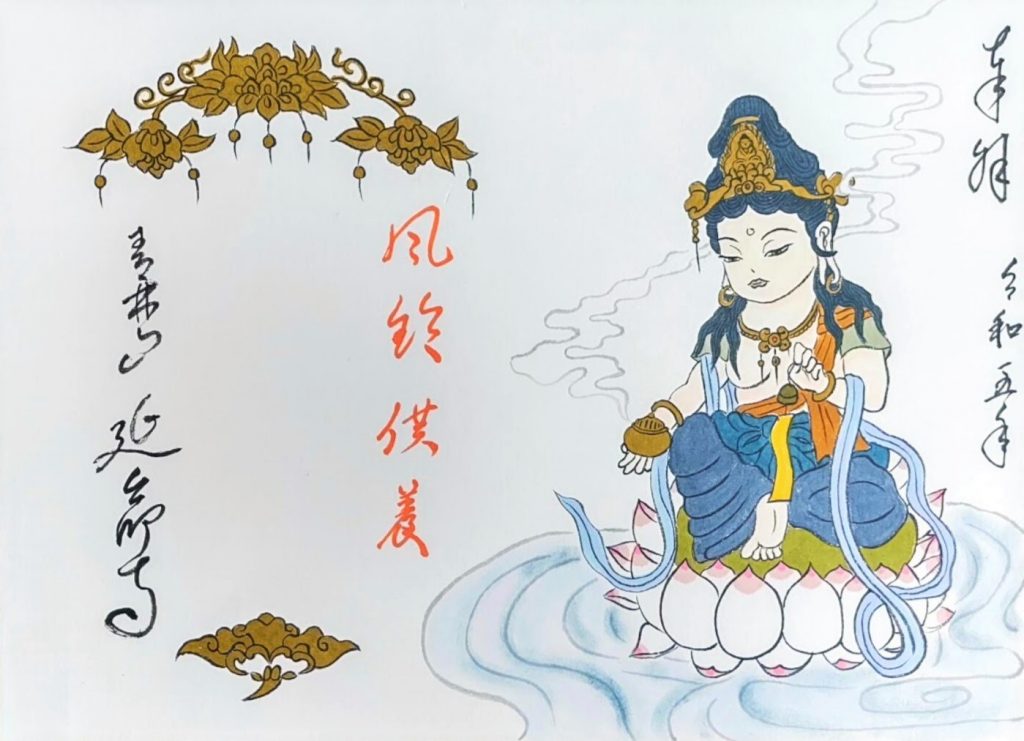 奉拝
令和五年
風鈴供養
延命寺